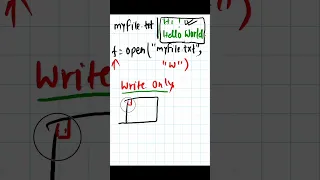 myfile.txt
Hi!
Hello World
f = open("myfile.txt",
"w")
Write Only